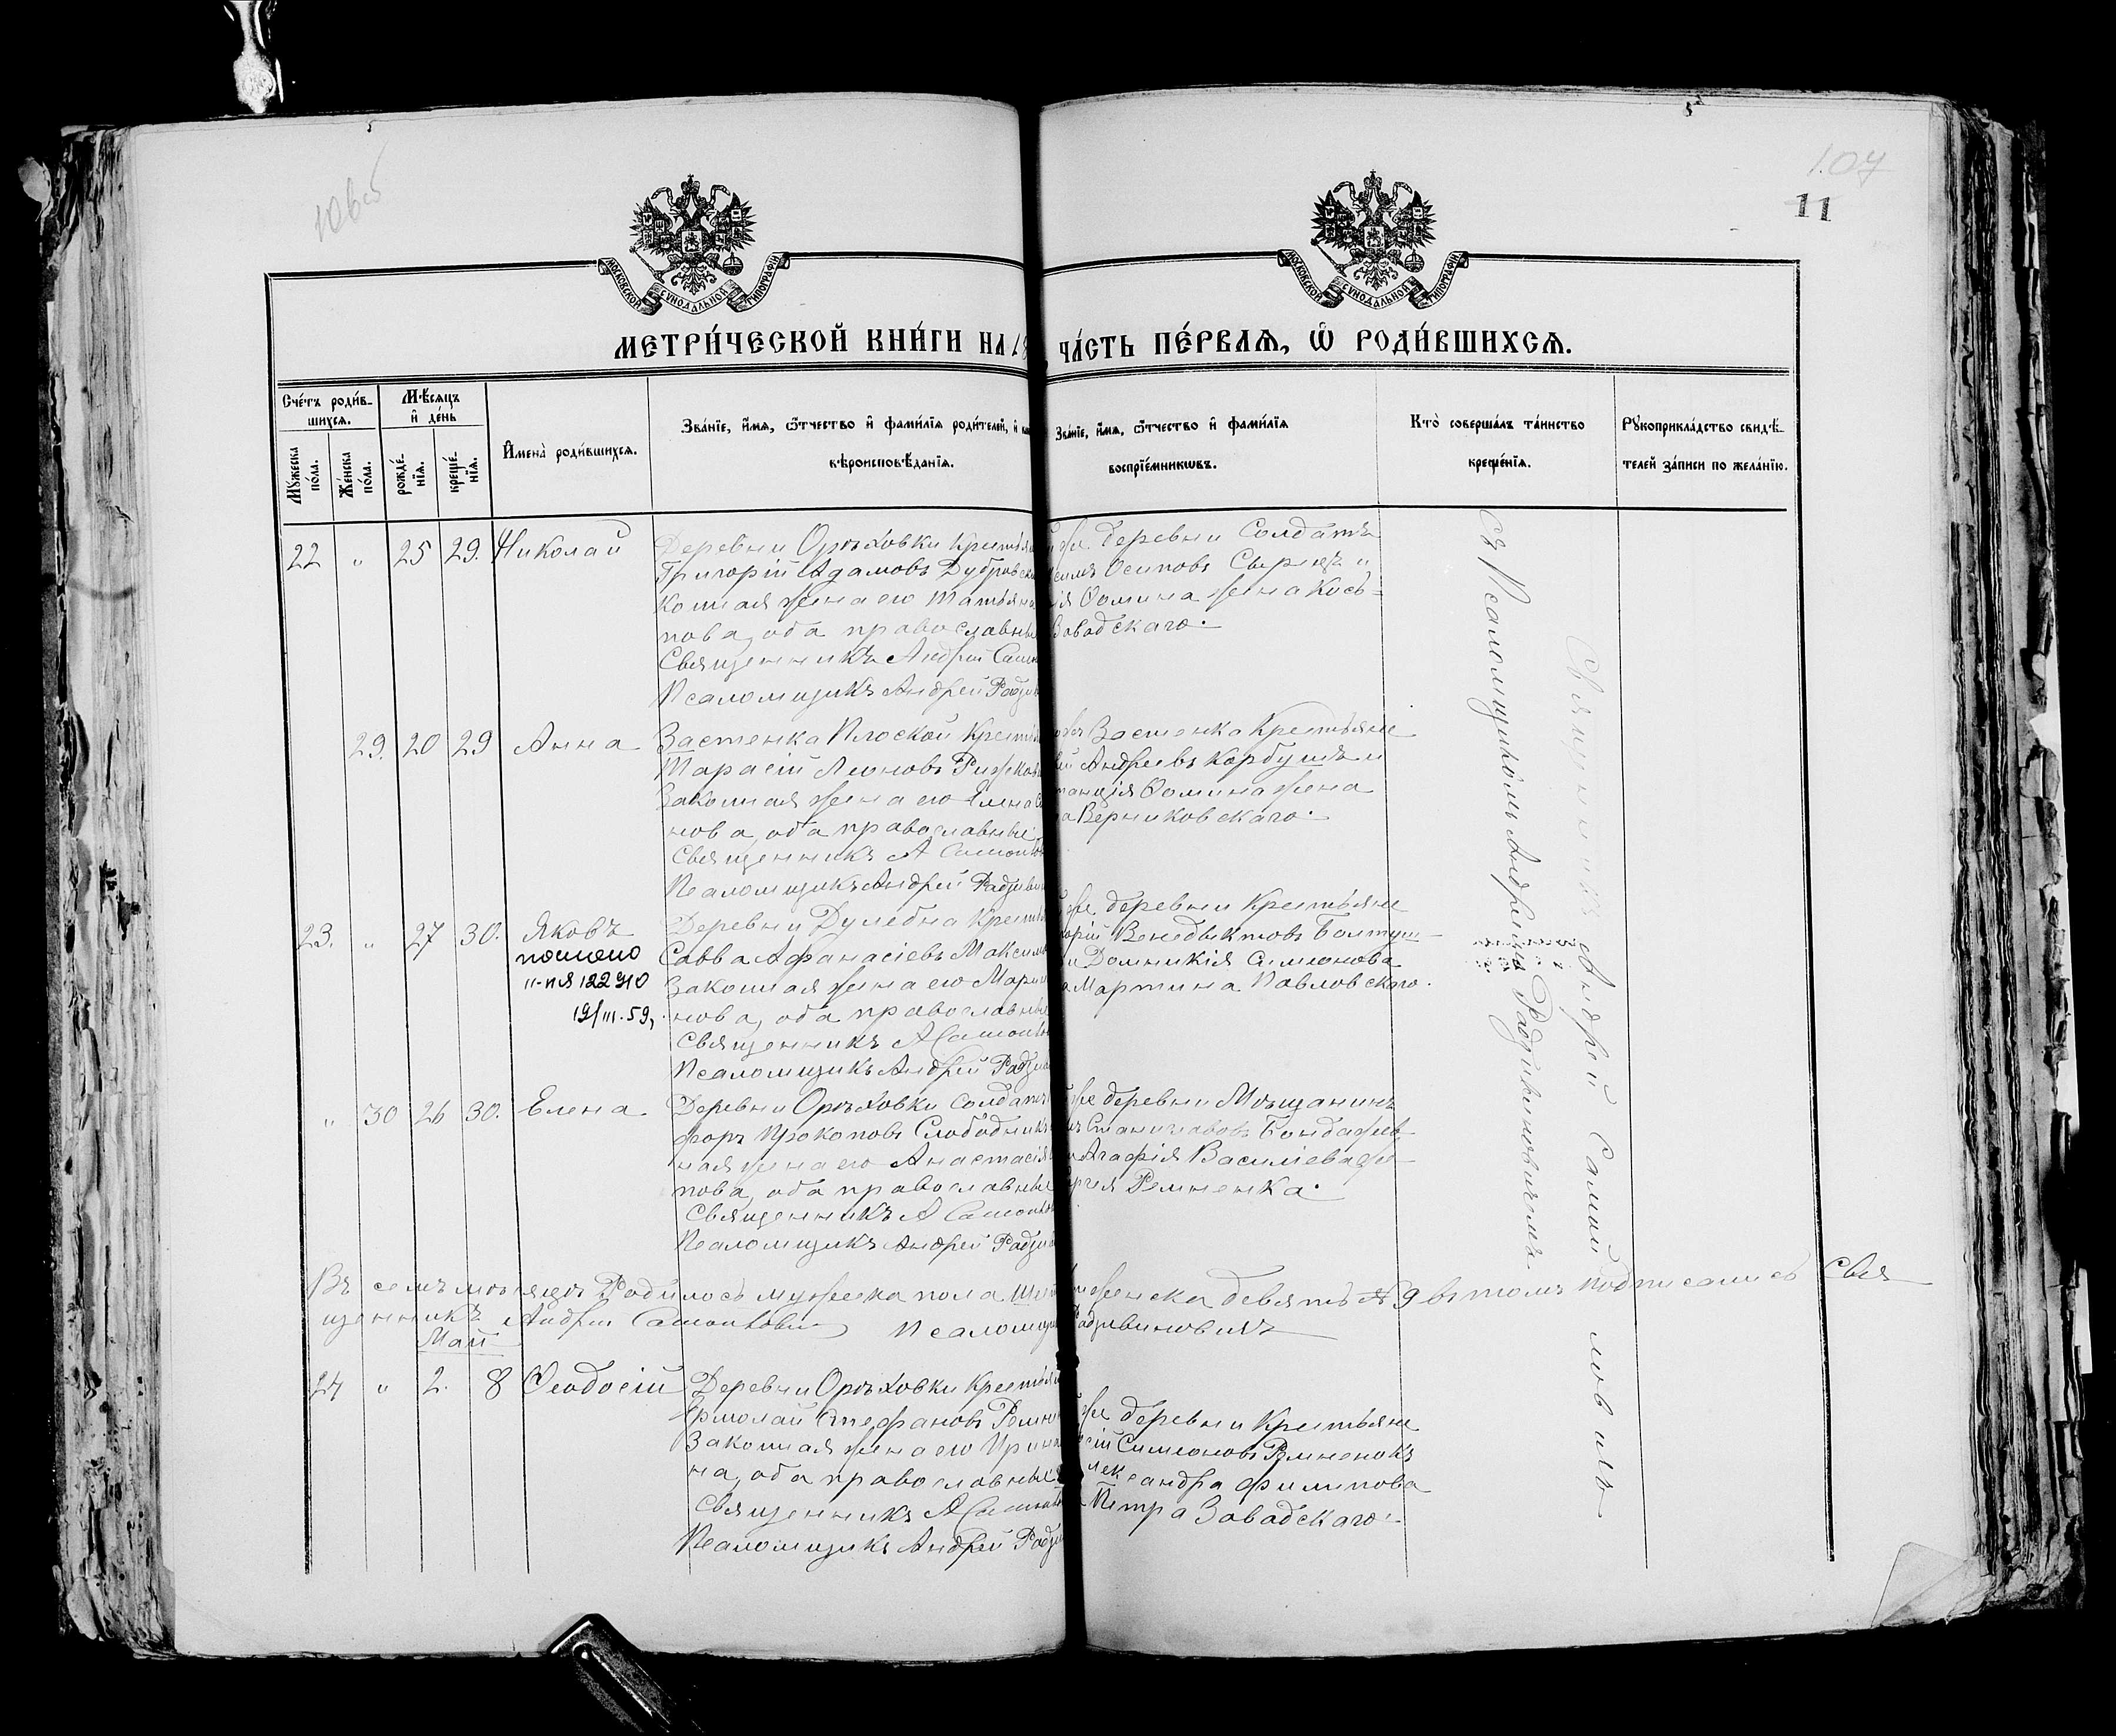 106об
107
11
МОСКОВСКОЙ СѴНОДАЛЬНОЙ ТИПОГРАФІИ
МОСКОВСКОЙ СѴНОДАЛЬНОЙ ТИПОГРАФІИ
МЕТРИ́ЧЕСКОЙ КНИ́ГИ НА 18
ЧА́СТЬ ПЕ́РВАѦ, Ѡ҆ РОДИ́ВШИХСѦ.
Сче́тъ роди́в-
шихсѧ.
Мꙋ́жеска по́ла.
Же́нска по́ла.
Мѣ́сѧцъ
и҆ де́нь
рожде́-
нїѧ.
креще́-
нїѧ.
И҆мена̀ роди́вшихсѧ.
Зва́нїе, и҆́мѧ, ѻ҆́тчество и҆ фами́лїѧ роди́телей, и҆
вѣроисповѣ́данїѧ.
Зва́нїе, и҆́мѧ, ѻ҆́тчество и҆ фами́лїѧ
воспрїе́мникѡвъ.
Кто̀ соверша́лъ та́инство
креще́нїѧ.
Рꙋкоприкла́дство свидѣ́-
телей за́писи по жела́нїю.
22 " 25 29. Николай
Деревни Орѣховки Крестья
Григорій Адамовъ Дубровск
конная жена его Татьяна
пова, оба православны
Священникъ Андрей Само
Псаломщикъ Андрей Радзи
же деревни Солдатъ
Осиповъ
Ѳомина жена Кось-
Завадскаго.
29. 20 29 Анна
Застенка Плоской Крестья
Тарасій Леоновъ
Законная жена его Елена
нова, оба православные
Священникъ А Самойлов
Псаломщикъ Андрей Радзиви
Застенка Крестьяне
Андреевъ Карбутъ и
Ѳомина жена
Верниковскаго.
23. " 27 30. Яковъ
19/III.59,
Деревни Дулебна Крестья
Савва Афанасіевъ Максим
Законная жена его Мари
нова, оба православные
Священникъ А Самойлов
Псаломщикъ Андрей Радзи
же деревни Крестьяне
горій Венедыктовъ Болтуш-
и Домникія Симеонова
Мартина Павловскаго.
" 30 26 30. Елена
Деревни Орѣховки Солдатъ
форъ Прокоповъ Слободник
ная жена его Анастасія
пова, оба православные
Священникъ А Самойлов
Псаломщикъ Андрей Радзив
же деревни Мѣщанинъ
Станиславовъ Бондарев
и Агафія Василіева же
Ременка.
Въ семъ мѣсяцѣ Родилось мужеска пола женска девять 9 въ томъ подписались Свя
щенникъ Андрей Самойлович Псаломщ Радзивиновичъ
Май
24 " 2. 8 Ѳеодосій
Деревни Орѣховки Крестья
Ермолай Стефановъ Ремн
Законная жена его Ирина
на, оба православные
Священникъ А Самойлов
Псаломщикъ Андрей Радзи
же деревни Крестьяне
сій Симеоновъ Ремненокъ
лександра Филипова
Петра Завадскаго.
Священникъ Андрей Самойловичъ
съ Псаломщикомъ Андреемъ Радзивиновичемъ